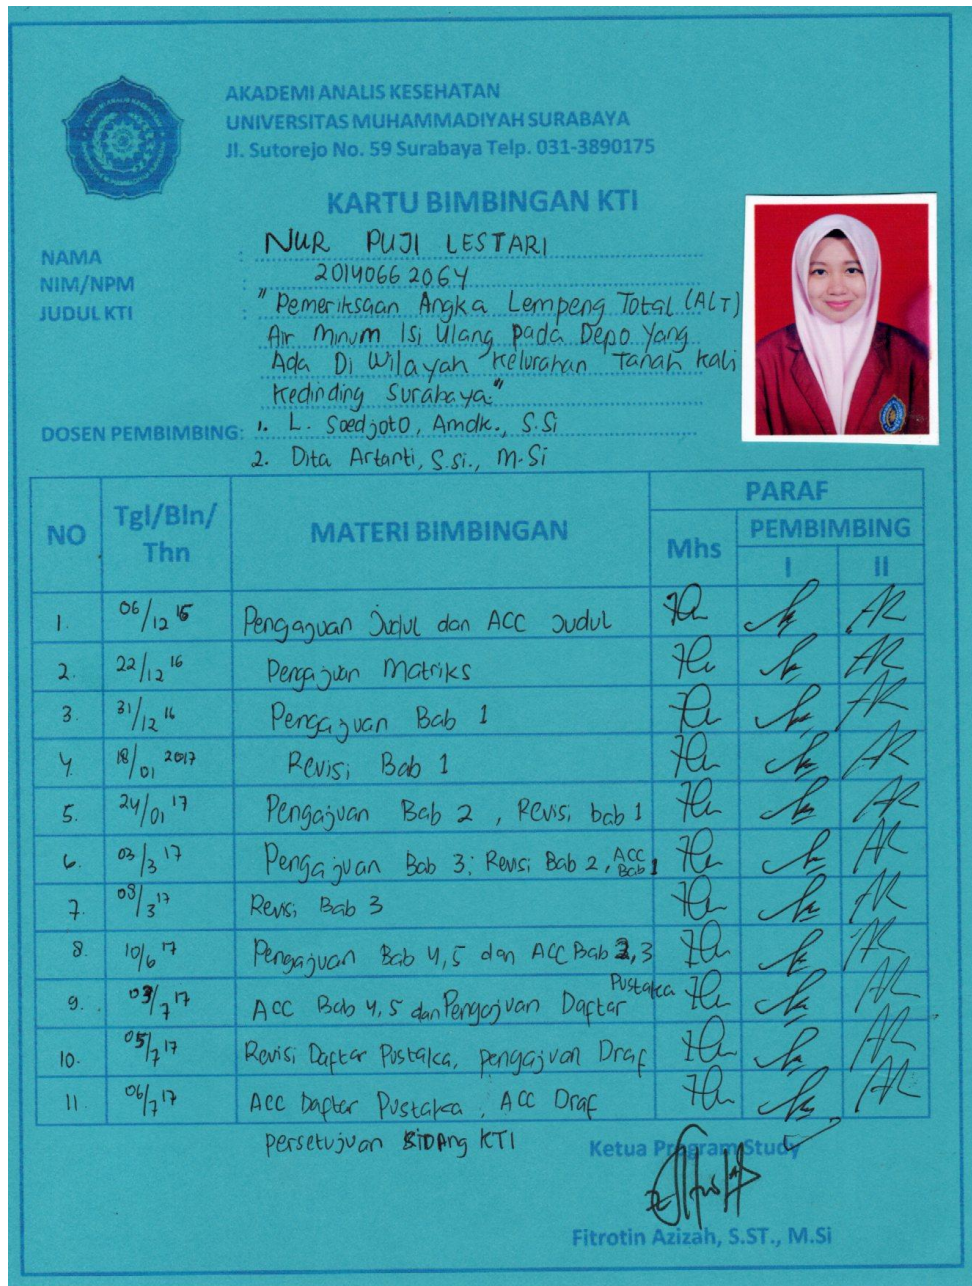 AKADEMI ANALIS KESEHATAN
UNIVERSITAS MUHAMMADIYAH SURABAYA
Jl. Sutorejo No. 59 Surabaya Telp. 031-3890175
KARTU BIMBINGAN KTI
NAMA : NUR PUJI LESTARI
NIM/NPM : 20140662064
JUDUL KTI : "Pemeriksaan Angka Lempeng Total (ALT)
Air Minum Isi Ulang pada Depo Yang
Ada Di Wilayah Kelurahan Tanah Kali
Kedinding Surabaya."
DOSEN PEMBIMBING: 1. L. Soedjoto, Amdk., S.Si
2. Dita Artanti, S.Si., M.Si
NO Tgl/Bln/Thn MATERI BIMBINGAN PARAF
Mhs PEMBIMBING
I II
1. 06/12 16 Pengajuan Judul dan ACC Judul
2. 22/12 16 Pengajuan Matriks
3. 31/12 16 Pengajuan Bab 1
4. 18/01 2017 Revisi Bab 1
5. 24/01 17 Pengajuan Bab 2, Revisi bab 1
6. 03/3 17 Pengajuan Bab 3; Revisi Bab 2, ACC Bab 1
7. 08/3 17 Revisi Bab 3
8. 10/6 17 Pengajuan Bab 4,5 dan ACC Bab 2,3
9. 03/7 17 ACC Bab 4,5 dan Pengajuan Daftar Pustaka
10. 05/7 17 Revisi Daftar Pustaka, pengajuan Draf
11. 06/7 17 Acc Daftar Pustaka, ACC Draf
persetujuan SIDANG KTI
Ketua Program Study
Fitrotin Azizah, S.ST., M.Si